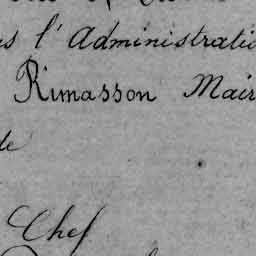 s l'Administratio
Rimasson Mair
de
Chef